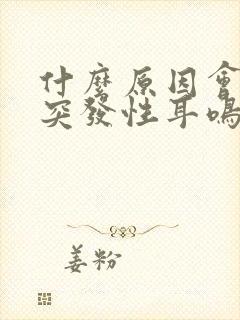 什麼原因會
突發性耳鳴
姜粉